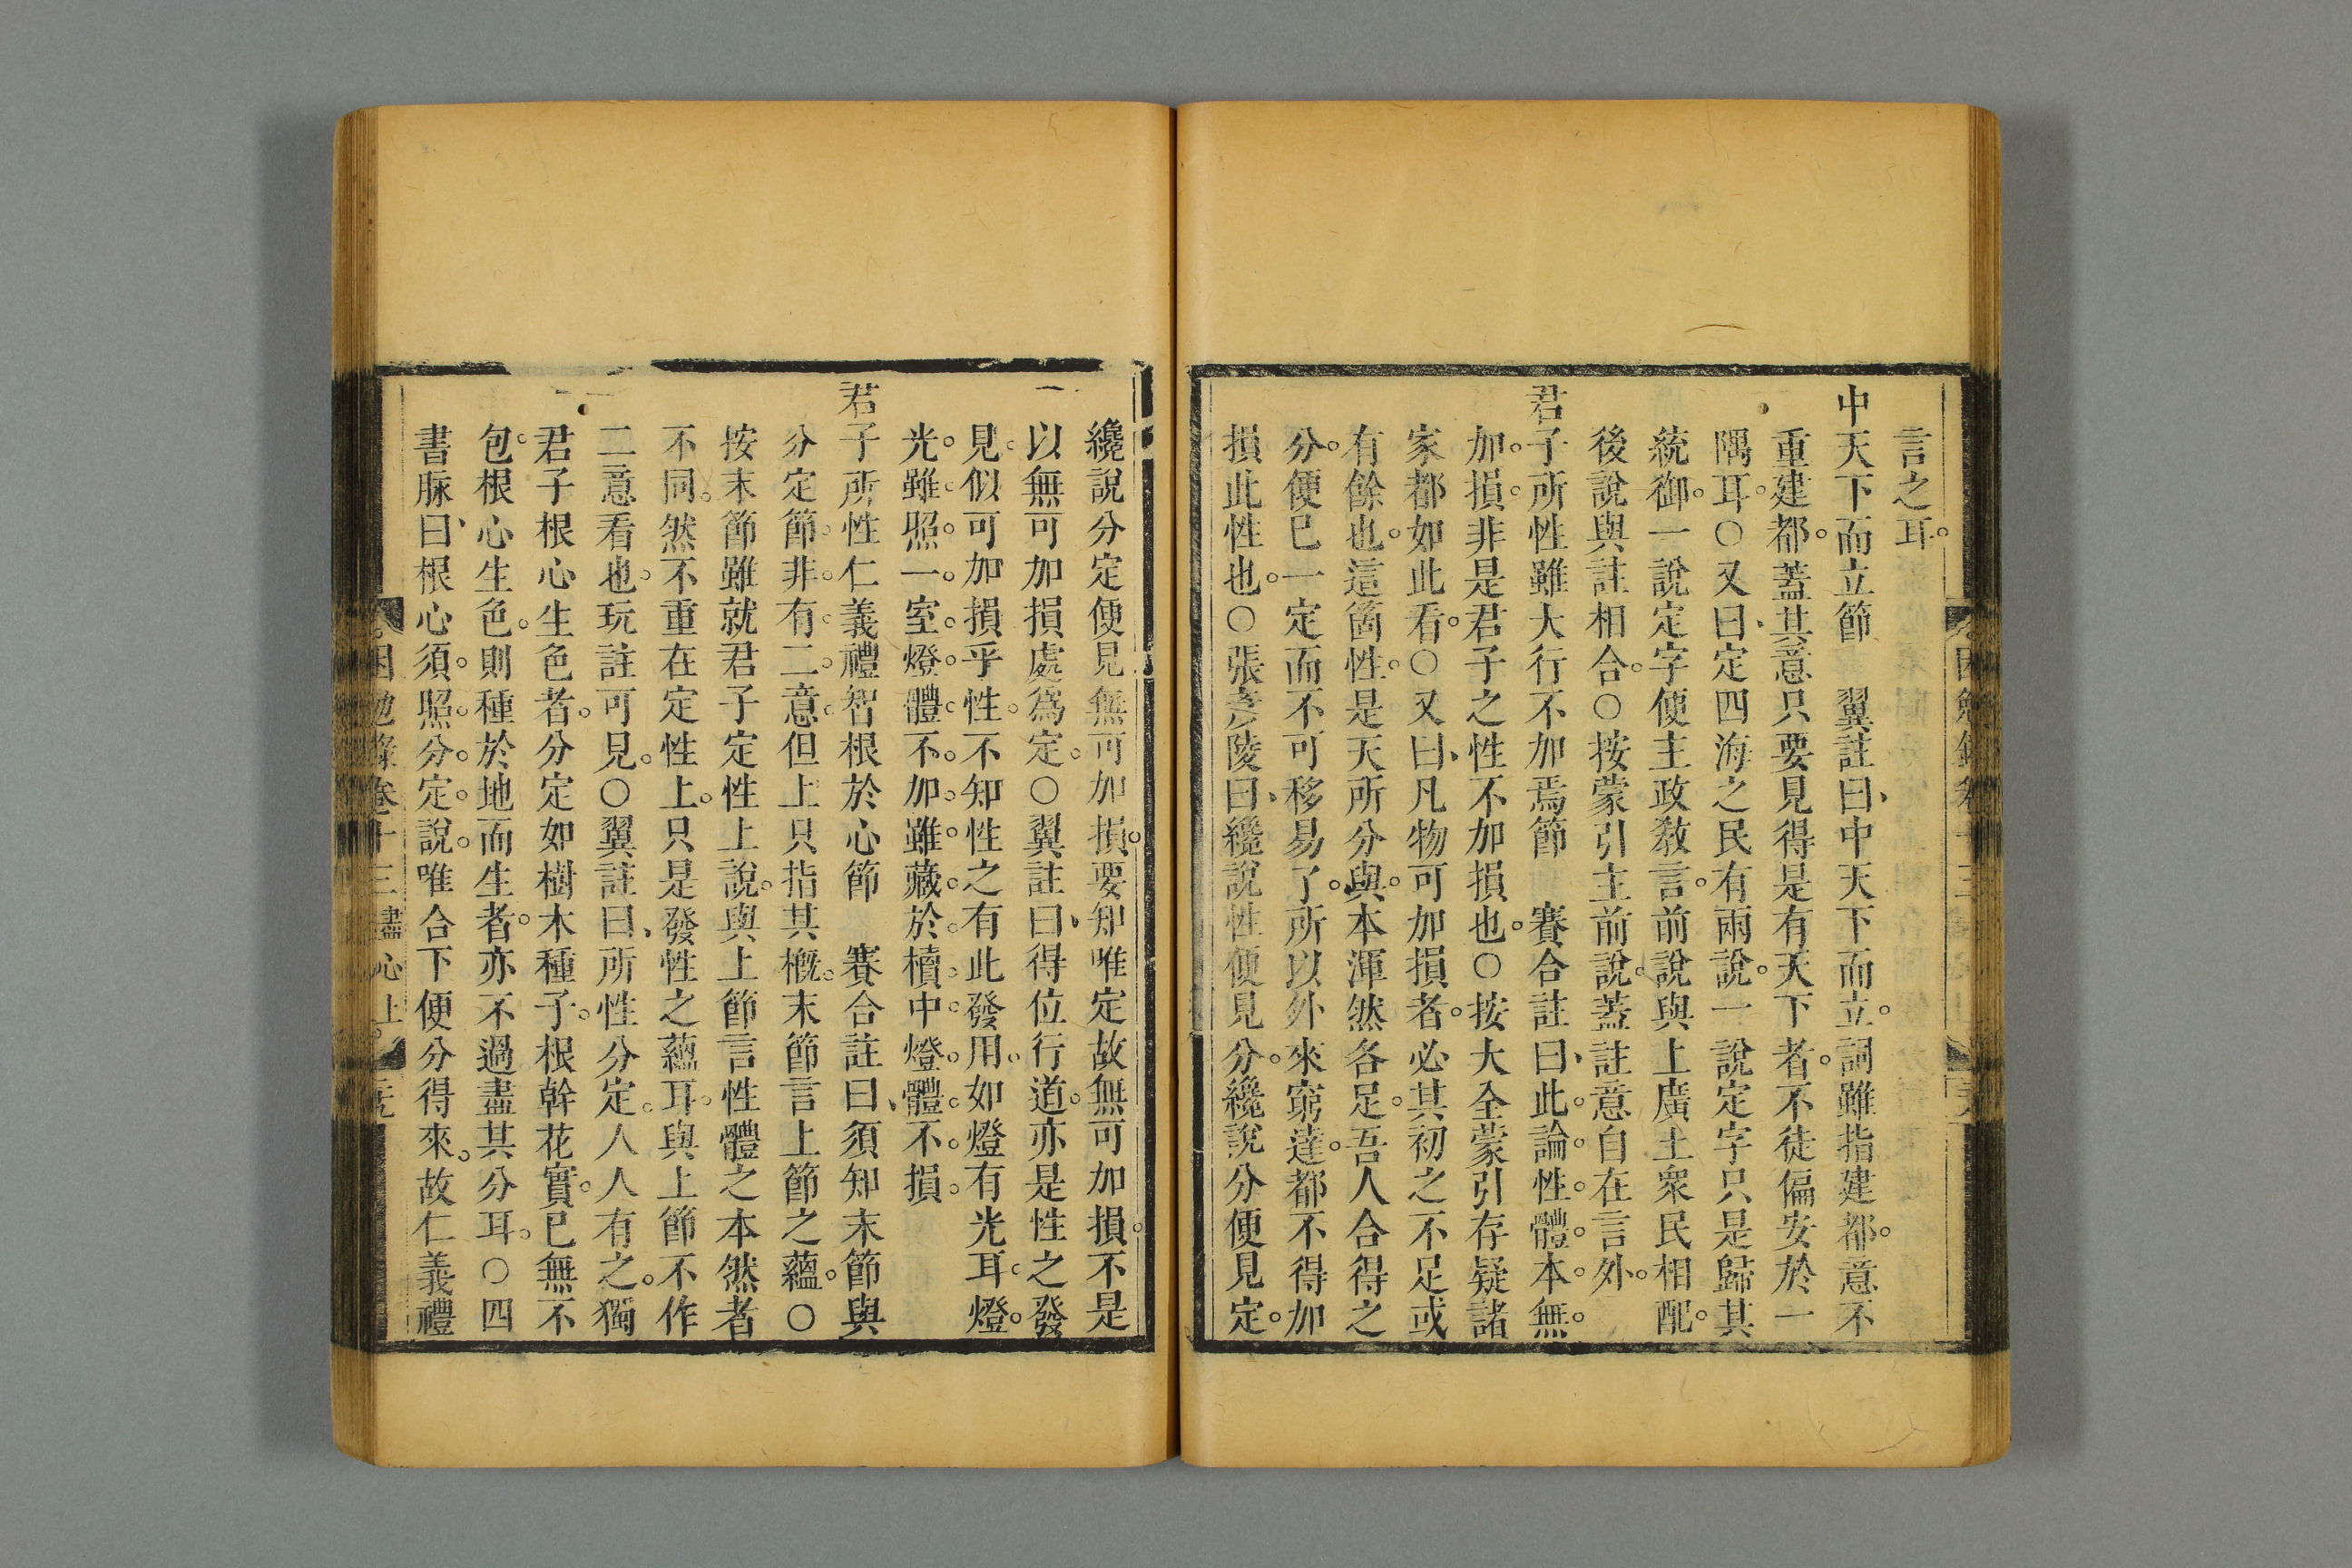 言之耳。
中天下而立節　翼註曰、中天下而立。詞雖指建都。意不
重建都。蓋其意只要見得是有天下者。不徒偏安於一
隅耳。○又曰、定四海之民有兩說。一說定字只是歸其
統御。一說定字便主政敎言。前說與上廣土衆民相配。
後說與註相合。○按蒙引主前說。蓋註意自在言外。
君子所性雖大行不加焉節　賽合註曰、此。論。性。體。本。無。
加。損。非是君子之性不加損也。○按大全蒙引存疑諸
家都如此看。○又曰、凡物可加損者。必其初之不足或
有餘也。這箇性。是天所分與。本渾然各足。吾人合得之
分。便已一定而不可移易了。所以外來窮達。都不得加
損此性也。○張彥陵曰、纔說性便見分。纔說分便見定。
纔說分定便見無可加損。要知唯定故無可加損。不是
以無可加損處爲定。○翼註曰、得位行道。亦是性之發
見。似可加損乎性。不知性之有此發用。如燈有光耳。燈。
光。雖。照。一。室。燈。體。不。加。雖。藏。於。櫝。中。燈。體。不。損。
君子所性仁義禮智根於心節　賽合註曰、須知末節與
分定節。非。有。二。意。但上只指其槪。末節言上節之蘊。○
按末節雖就君子定性上說。與上節言性體之本然者
不同。然不重在定性上。只是發性之蘊耳。與上節不作
二意看也。玩註可見。○翼註曰、所性分定。人人有之。獨
君子根心生色者。分定如樹木種子。根幹花實。已無不
包。根心生色。則種於地而生者。亦不過盡其分耳。○四
書脈曰、根心須。照。分。定。說。唯合下便分得來。故仁義禮
困勉錄卷十三 盡心上